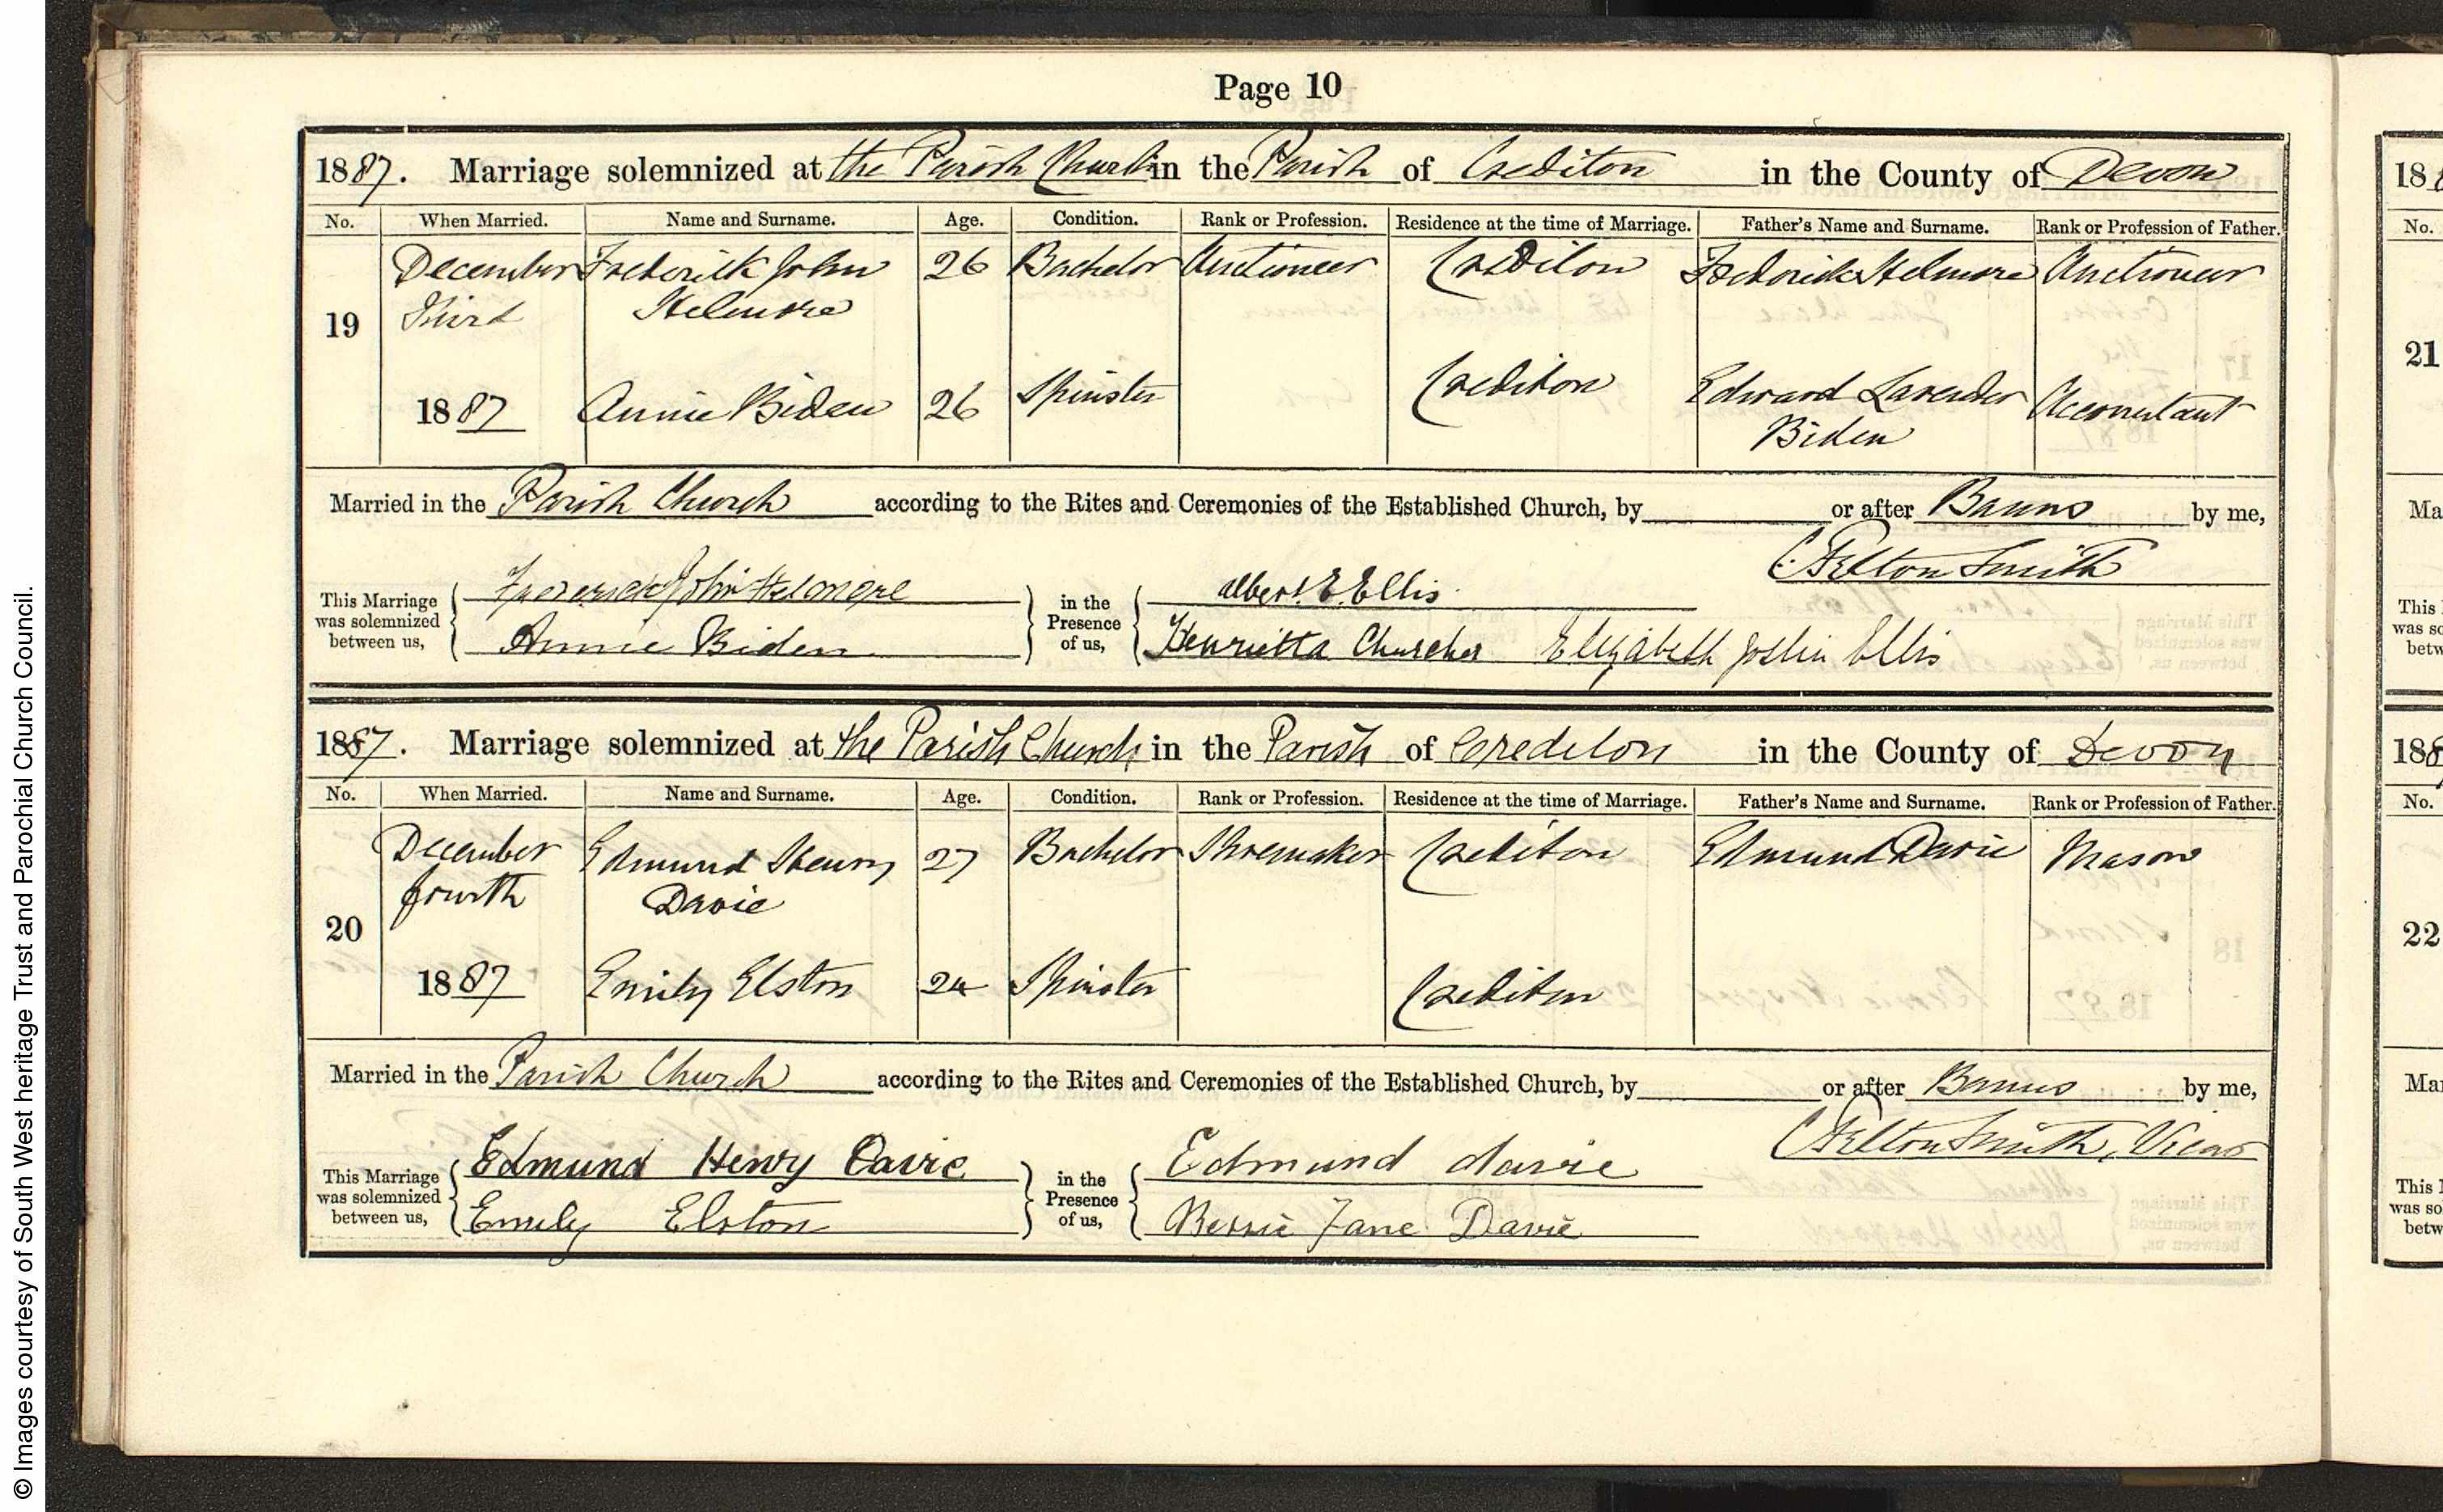 Page 10
1887. Marriage solemnized at the Parish Church in the Parish of Crediton in the County of Devon
No. When Married. Name and Surname. Age. Condition. Rank or Profession. Residence at the time of Marriage. Father's Name and Surname. Rank or Profession of Father.
December Frederick John 26 Bachelor Auctioneer Crediton Frederick Helmore Auctioneer
Third Helmore
19
1887 Annie Biden 26 Spinster Crediton Edward Lavender Accountant
Biden
Married in the Parish Church according to the Rites and Ceremonies of the Established Church, by or after Banns by me,
C. Felton Smith
This Marriage was solemnized between us, Frederick John Helmore in the Presence of us, Albert E. Ellis
Annie Biden Henrietta Churcher Elizabeth Joslin Ellis
1887. Marriage solemnized at the Parish Church in the Parish of Crediton in the County of Devon
No. When Married. Name and Surname. Age. Condition. Rank or Profession. Residence at the time of Marriage. Father's Name and Surname. Rank or Profession of Father.
December Edmund Henry 27 Bachelor Shoemaker Crediton Edmund Davie Mason
fourth Davie
20
1887 Emily Elston 24 Spinster Crediton
Married in the Parish Church according to the Rites and Ceremonies of the Established Church, by or after Banns by me,
C. Felton Smith, Vicar
This Marriage was solemnized between us, Edmund Henry Davie in the Presence of us, Edmund davie
Emily Elston Bessie Jane Davie
18
No.
21
Ma
This
was so
betw
188
No.
22
Mar
This
was so
betw
© Images courtesy of South West heritage Trust and Parochial Church Council.